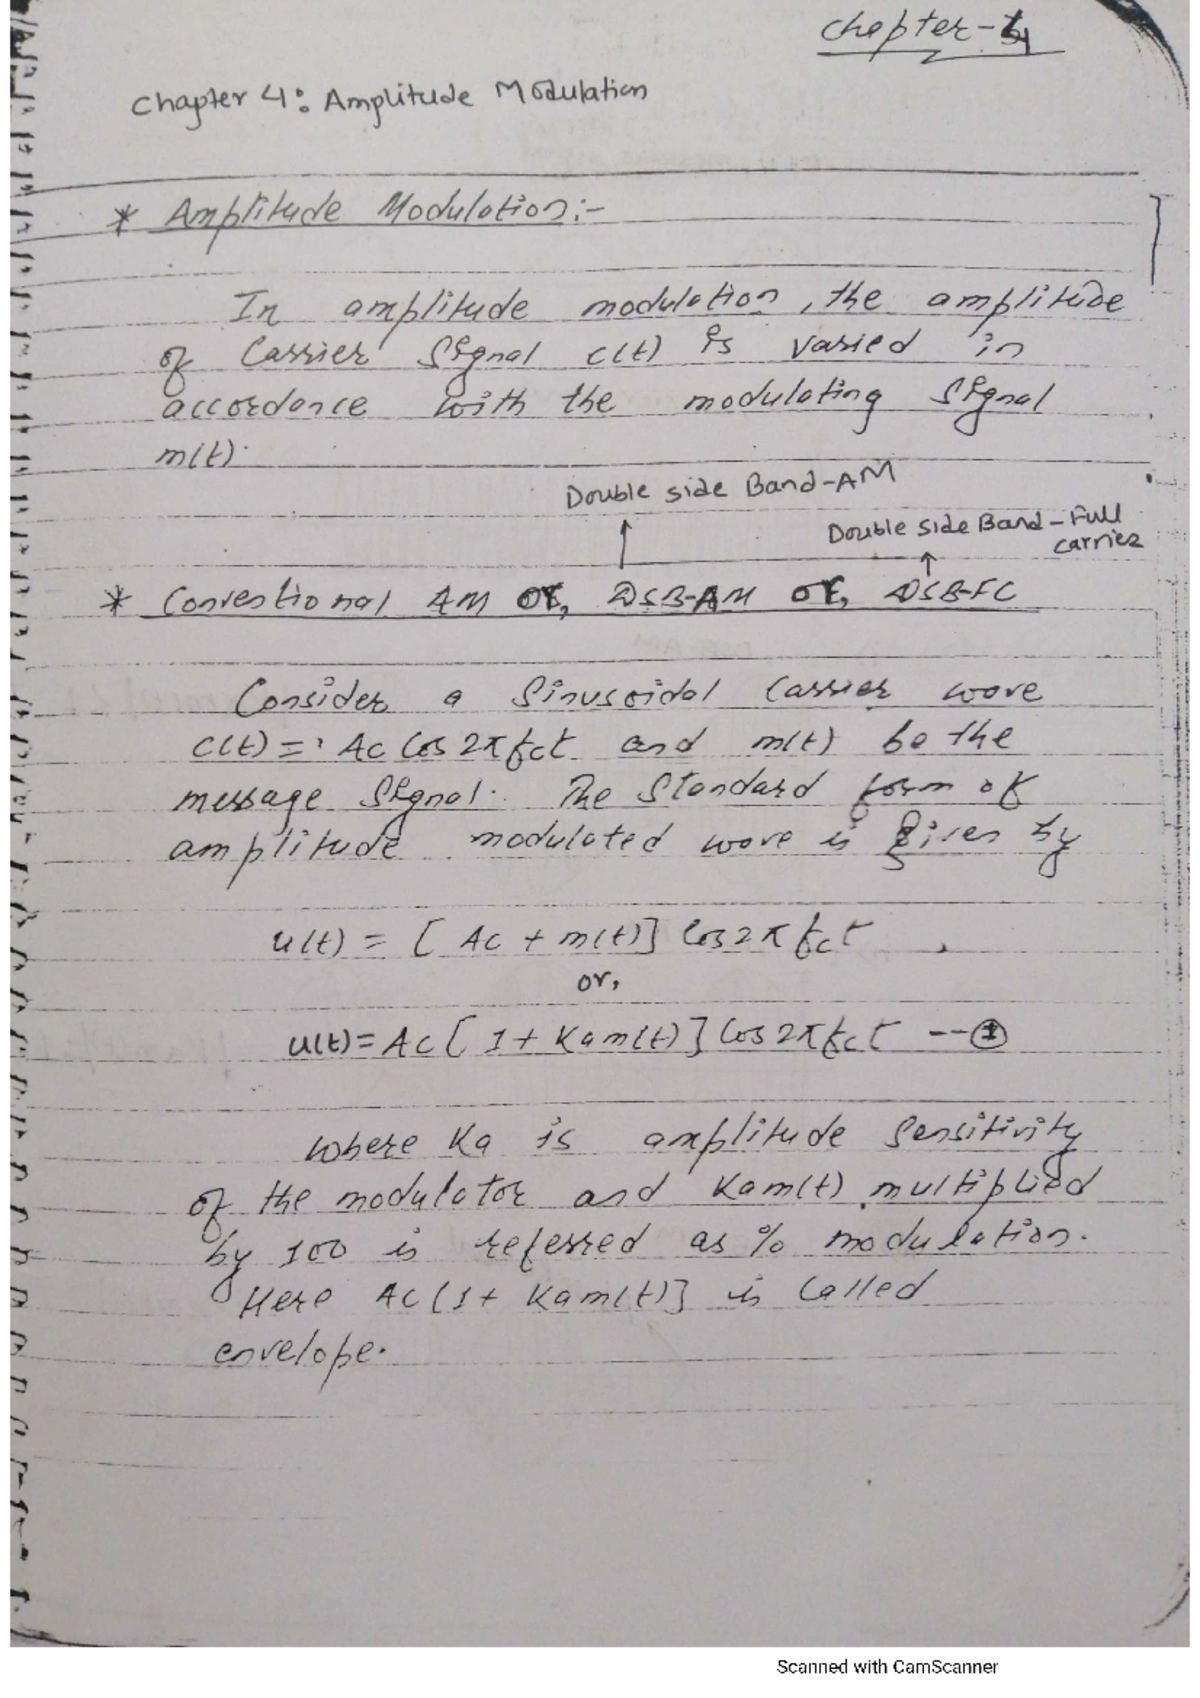 Chapter-4
Chapter 4: Amplitude Modulation
* Amplitude Modulation:-
In amplitude modulation, the amplitude
of Carrier Signal c(t) is varied in
accordance with the modulating Signal
m(t).
Double side Band-AM
Double side Band-Full
carrier
* Conventional AM or, DSB-AM or, DSB-FC
Consider a Sinusoidal Carrier wave
c(t) = Ac Cos 2π fct and m(t) be the
message Signal. The Standard form of
amplitude modulated wave is given by
u(t) = [ Ac + m(t)] Cos 2π fct
or,
u(t) = Ac [ 1 + Ka m(t) ] Cos 2π fct --- ①
where Ka is amplitude Sensitivity
of the modulator and Kam(t) multiplied
by 100 is referred as % modulation.
Here Ac[1+ Kam(t)] is Called
envelope.
Scanned with CamScanner